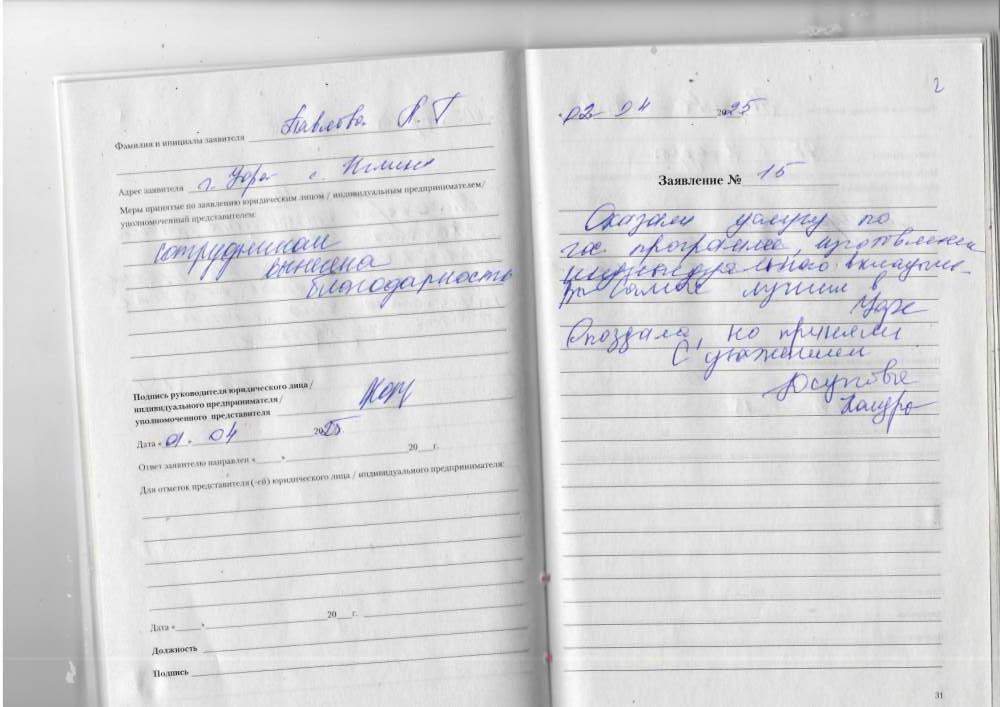 Фамилия и инициалы заявителя Павлова Л. Г
Адрес заявителя г. Уфа с.
Меры принятые по заявлению юридическим лицом / индивидуальным предпринимателем/
уполномоченный представителем:
сотрудникам
вынесена
благодарность
Подпись руководителя юридического лица/
индивидуального предпринимателя/
уполномоченного представителя
Дата « 01. 04 2025
Ответ заявителю направлен «____» 20___г.
Для отметок представителя (-ей) юридического лица / индивидуального предпринимателя:
Дата «____» 20___г.
Должность
Подпись
2
02 04 2025
Заявление № 15
Оказали услугу по
гос. программе, изготовлению
индивидуального вкладыша
самые лучшие в
Уфе
Опоздала, но приняли
С уважением
Юсупова
31